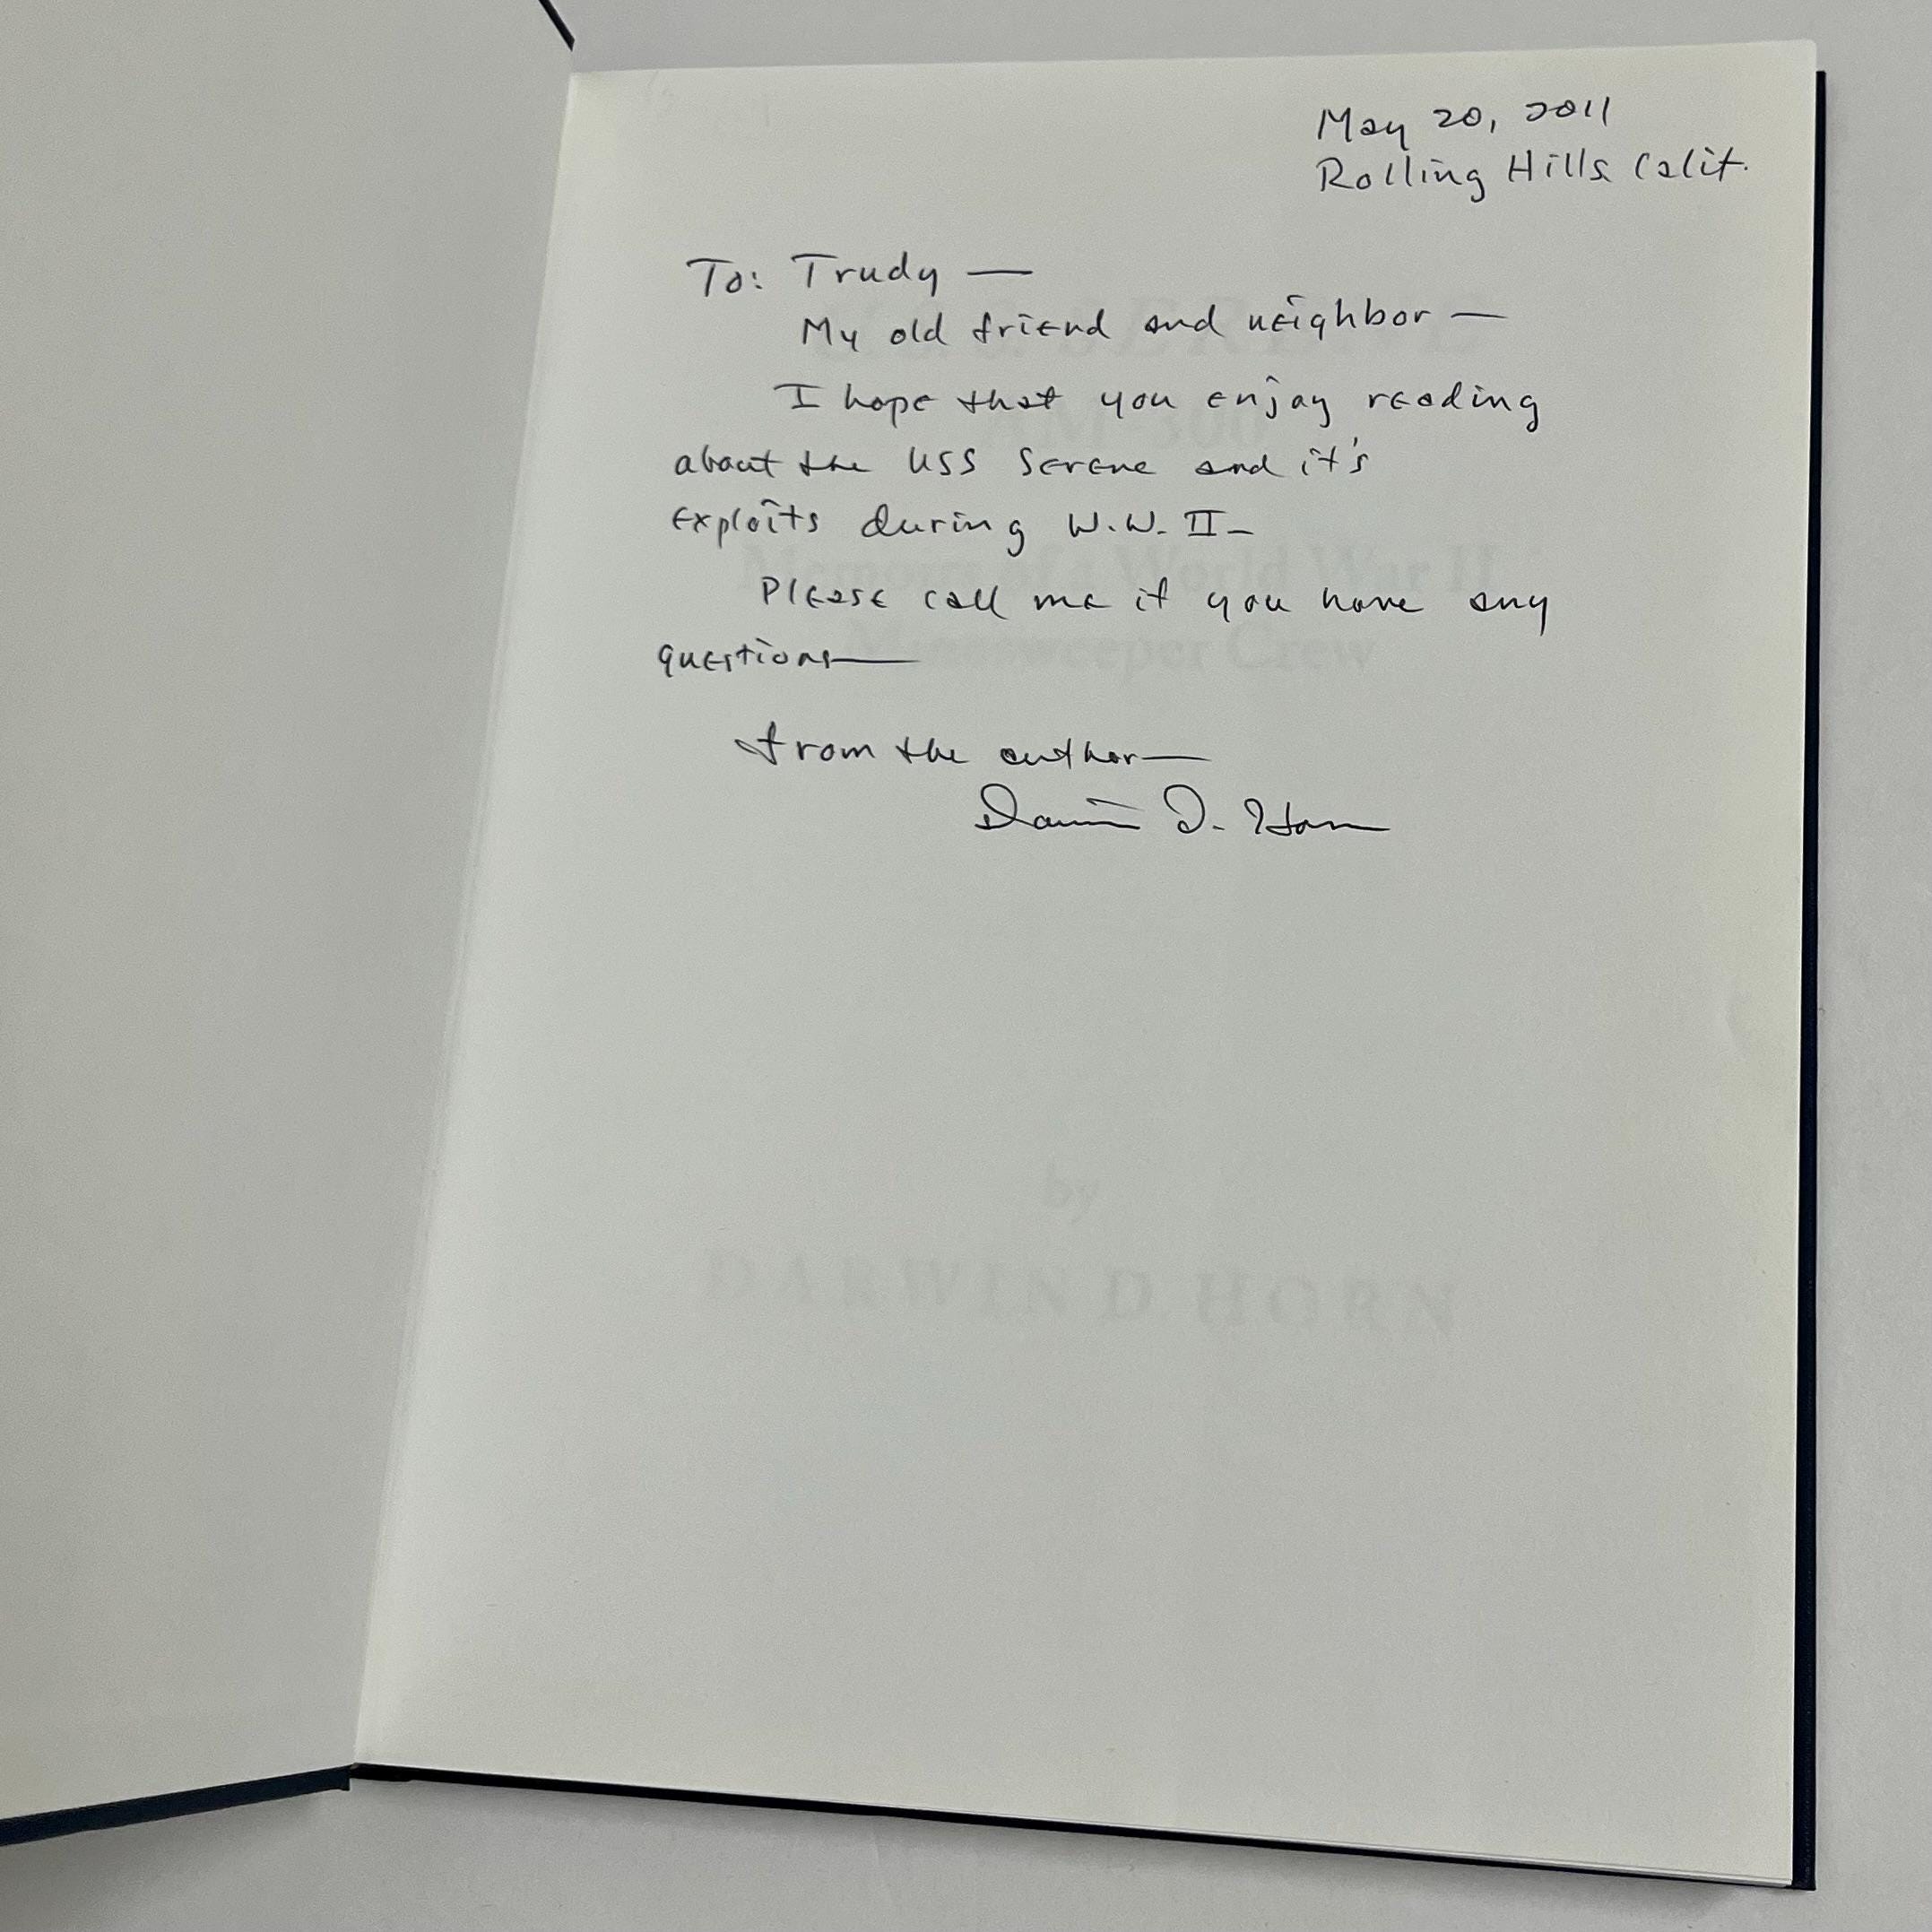 May 20, 2011
Rolling Hills Calif.
To: Trudy —
My old friend and neighbor —
I hope that you enjoy reading
about the USS Serene and it's
exploits during W.W. II —
Please call me if you have any
questions —
from the author —
Darwin D. Horn
U.S.S. SERENE
AM-300
Memoirs of a World War II
Minesweeper Crew
by
DARWIN D. HORN